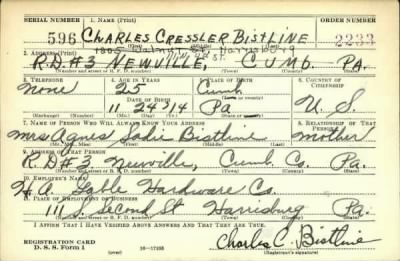 SERIAL NUMBER 1. NAME (Print) ORDER NUMBER
596 CHARLES CRESSLER BISTLINE 2233
1805 Walnut St Harrisburg
2. ADDRESS (Print)
R.D.#3 NEWVILLE, CUMB. PA.
(Number and street or R. F. D. number) (Town) (County) (State)
3. TELEPHONE 4. AGE IN YEARS 5. PLACE OF BIRTH 6. COUNTRY OF CITIZENSHIP
None 25 Cumb.
DATE OF BIRTH (Town or county)
11 24 '14 Pa U. S.
(Exchange) (Number) (Mo.) (Day) (Yr.) (State or country)
7. NAME OF PERSON WHO WILL ALWAYS KNOW YOUR ADDRESS 8. RELATIONSHIP OF THAT PERSON
Mrs Agnes Sadie Bistline Mother
(Mr., Mrs., Miss) (First) (Middle) (Last)
9. ADDRESS OF THAT PERSON
R.D.#3 Newville, Cumb. Co. Pa.
(Number and street or R. F. D. number) (Town) (County) (State)
10. EMPLOYER'S NAME
H.A. Gable Hardware Co.
11. PLACE OF EMPLOYMENT OR BUSINESS
111 S Second St Harrisburg Pa.
(Number and street or R. F. D. number) (Town) (County) (State)
I AFFIRM THAT I HAVE VERIFIED ABOVE ANSWERS AND THAT THEY ARE TRUE.
REGISTRATION CARD
D. S. S. Form 1 16—17105 Charles C. Bistline
(Registrant's signature)